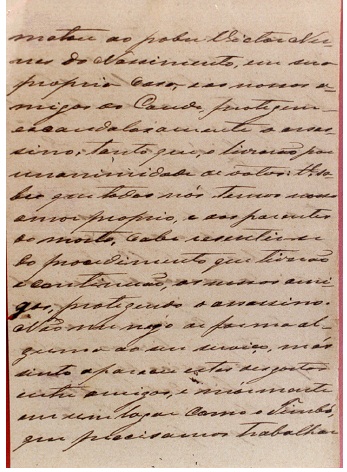 matou ao pobre Victor Nu-
nes do Nascimento, em sua
propria casa, e os nossos a-
migos do Conde, protegem
escandalosamente o assas-
sino; tanto que, o livrarão por
unanimidade de votos: V. sa-
be que todos nós temos nosso
amor proprio, e aos parentes
do morto, cabe resentir-se
do procedimento que tiverão
e continuão, os nossos ami-
gos, protegendo o assassino.
Não me nego de forma al-
guma ao seu serviço, mas
sinto apparecer estes desgostos
entre amigos, e mórmente
em um lugar como o Timbó,
que precisamos trabalhar